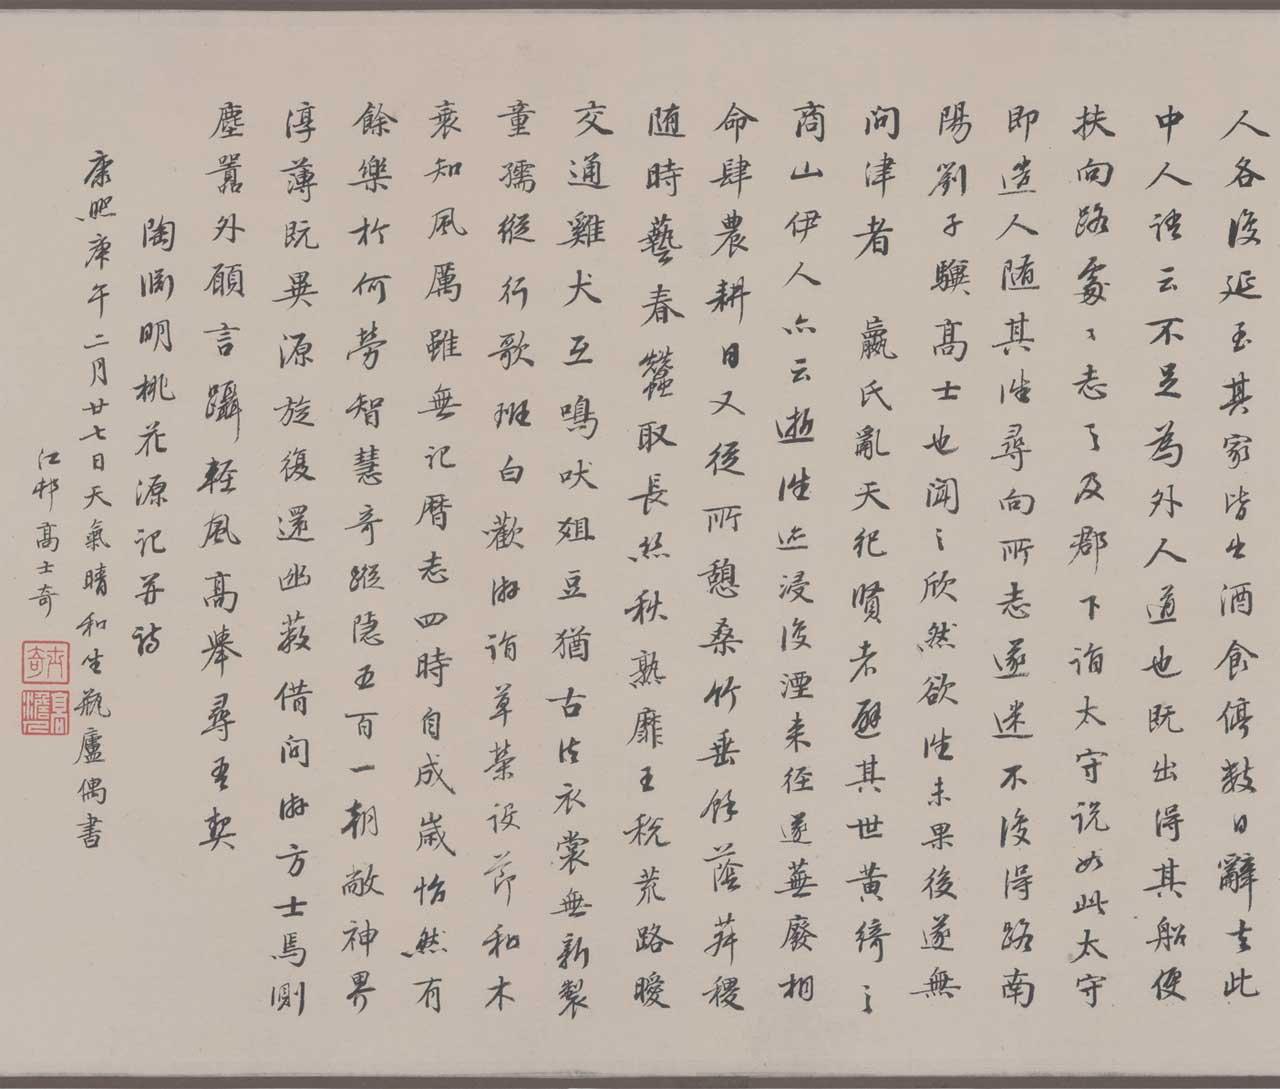 人各復延至其家皆出酒食停數日辭去此
中人語云不足為外人道也既出得其船便
扶向路處〻志之及郡下詣太守說如此太守
即造人隨其往尋向所志遂迷不復得路南
陽劉子驥高士也聞之欣然欲往未果後遂無
問津者 嬴氏亂天紀賢者避其世黃綺之
商山伊人亦云逝往迹浸復湮来徑遂蕪廢相
命肆農耕日又從所憩桑竹垂餘蔭菽稷
隨時藝春蠶取長絲秋熟靡王稅荒路曖
交通雞犬互鳴吠俎豆猶古法衣裳無新製
童孺縱行歌班白歡游詣草榮設節和木
衰知風厲雖無記曆志四時自成歲怡然有
餘樂於何勞智慧奇蹤隱五百一朝敞神界
淳薄既異源旋復還幽蔽借問游方士馬測
塵囂外願言躡輕風高舉尋吾契
陶淵明桃花源記并詩
康熙庚午二月廿七日天氣晴和生瓶廬偶書
江邨高士奇